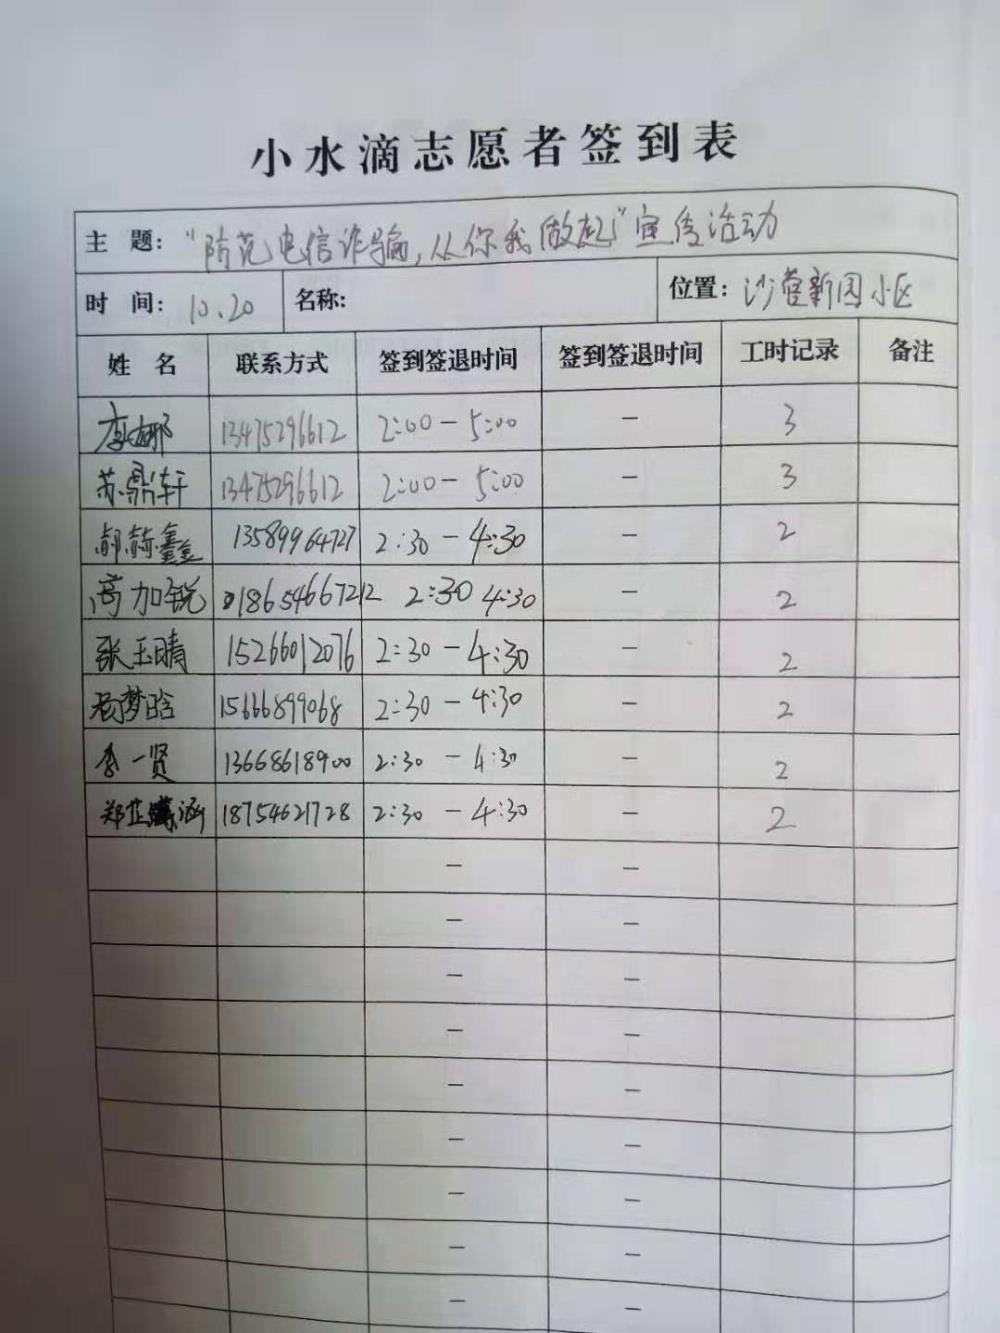 小水滴志愿者签到表
主 题: "防范电信诈骗,从你我做起"宣传活动
时 间: 10.20 名称: 位置: 沙营新园小区
姓 名 联系方式 签到签退时间 签到签退时间 工时记录 备注
李娜 13475296612 2:00 - 5:00 - 3
苏鼎轩 13475296612 2:00 - 5:00 - 3
郝赫鑫 13589964727 2:30 - 4:30 - 2
高加锐 18654667212 2:30 4:30 - 2
张玉晴 15266012076 2:30 - 4:30 - 2
梦晗 15666899068 2:30 - 4:30 - 2
李一贤 13668618900 2:30 - 4:30 - 2
郑芷涵 18754621728 2:30 - 4:30 - 2
- -
- -
- -
- -
- -
- -
- -
- -
- -